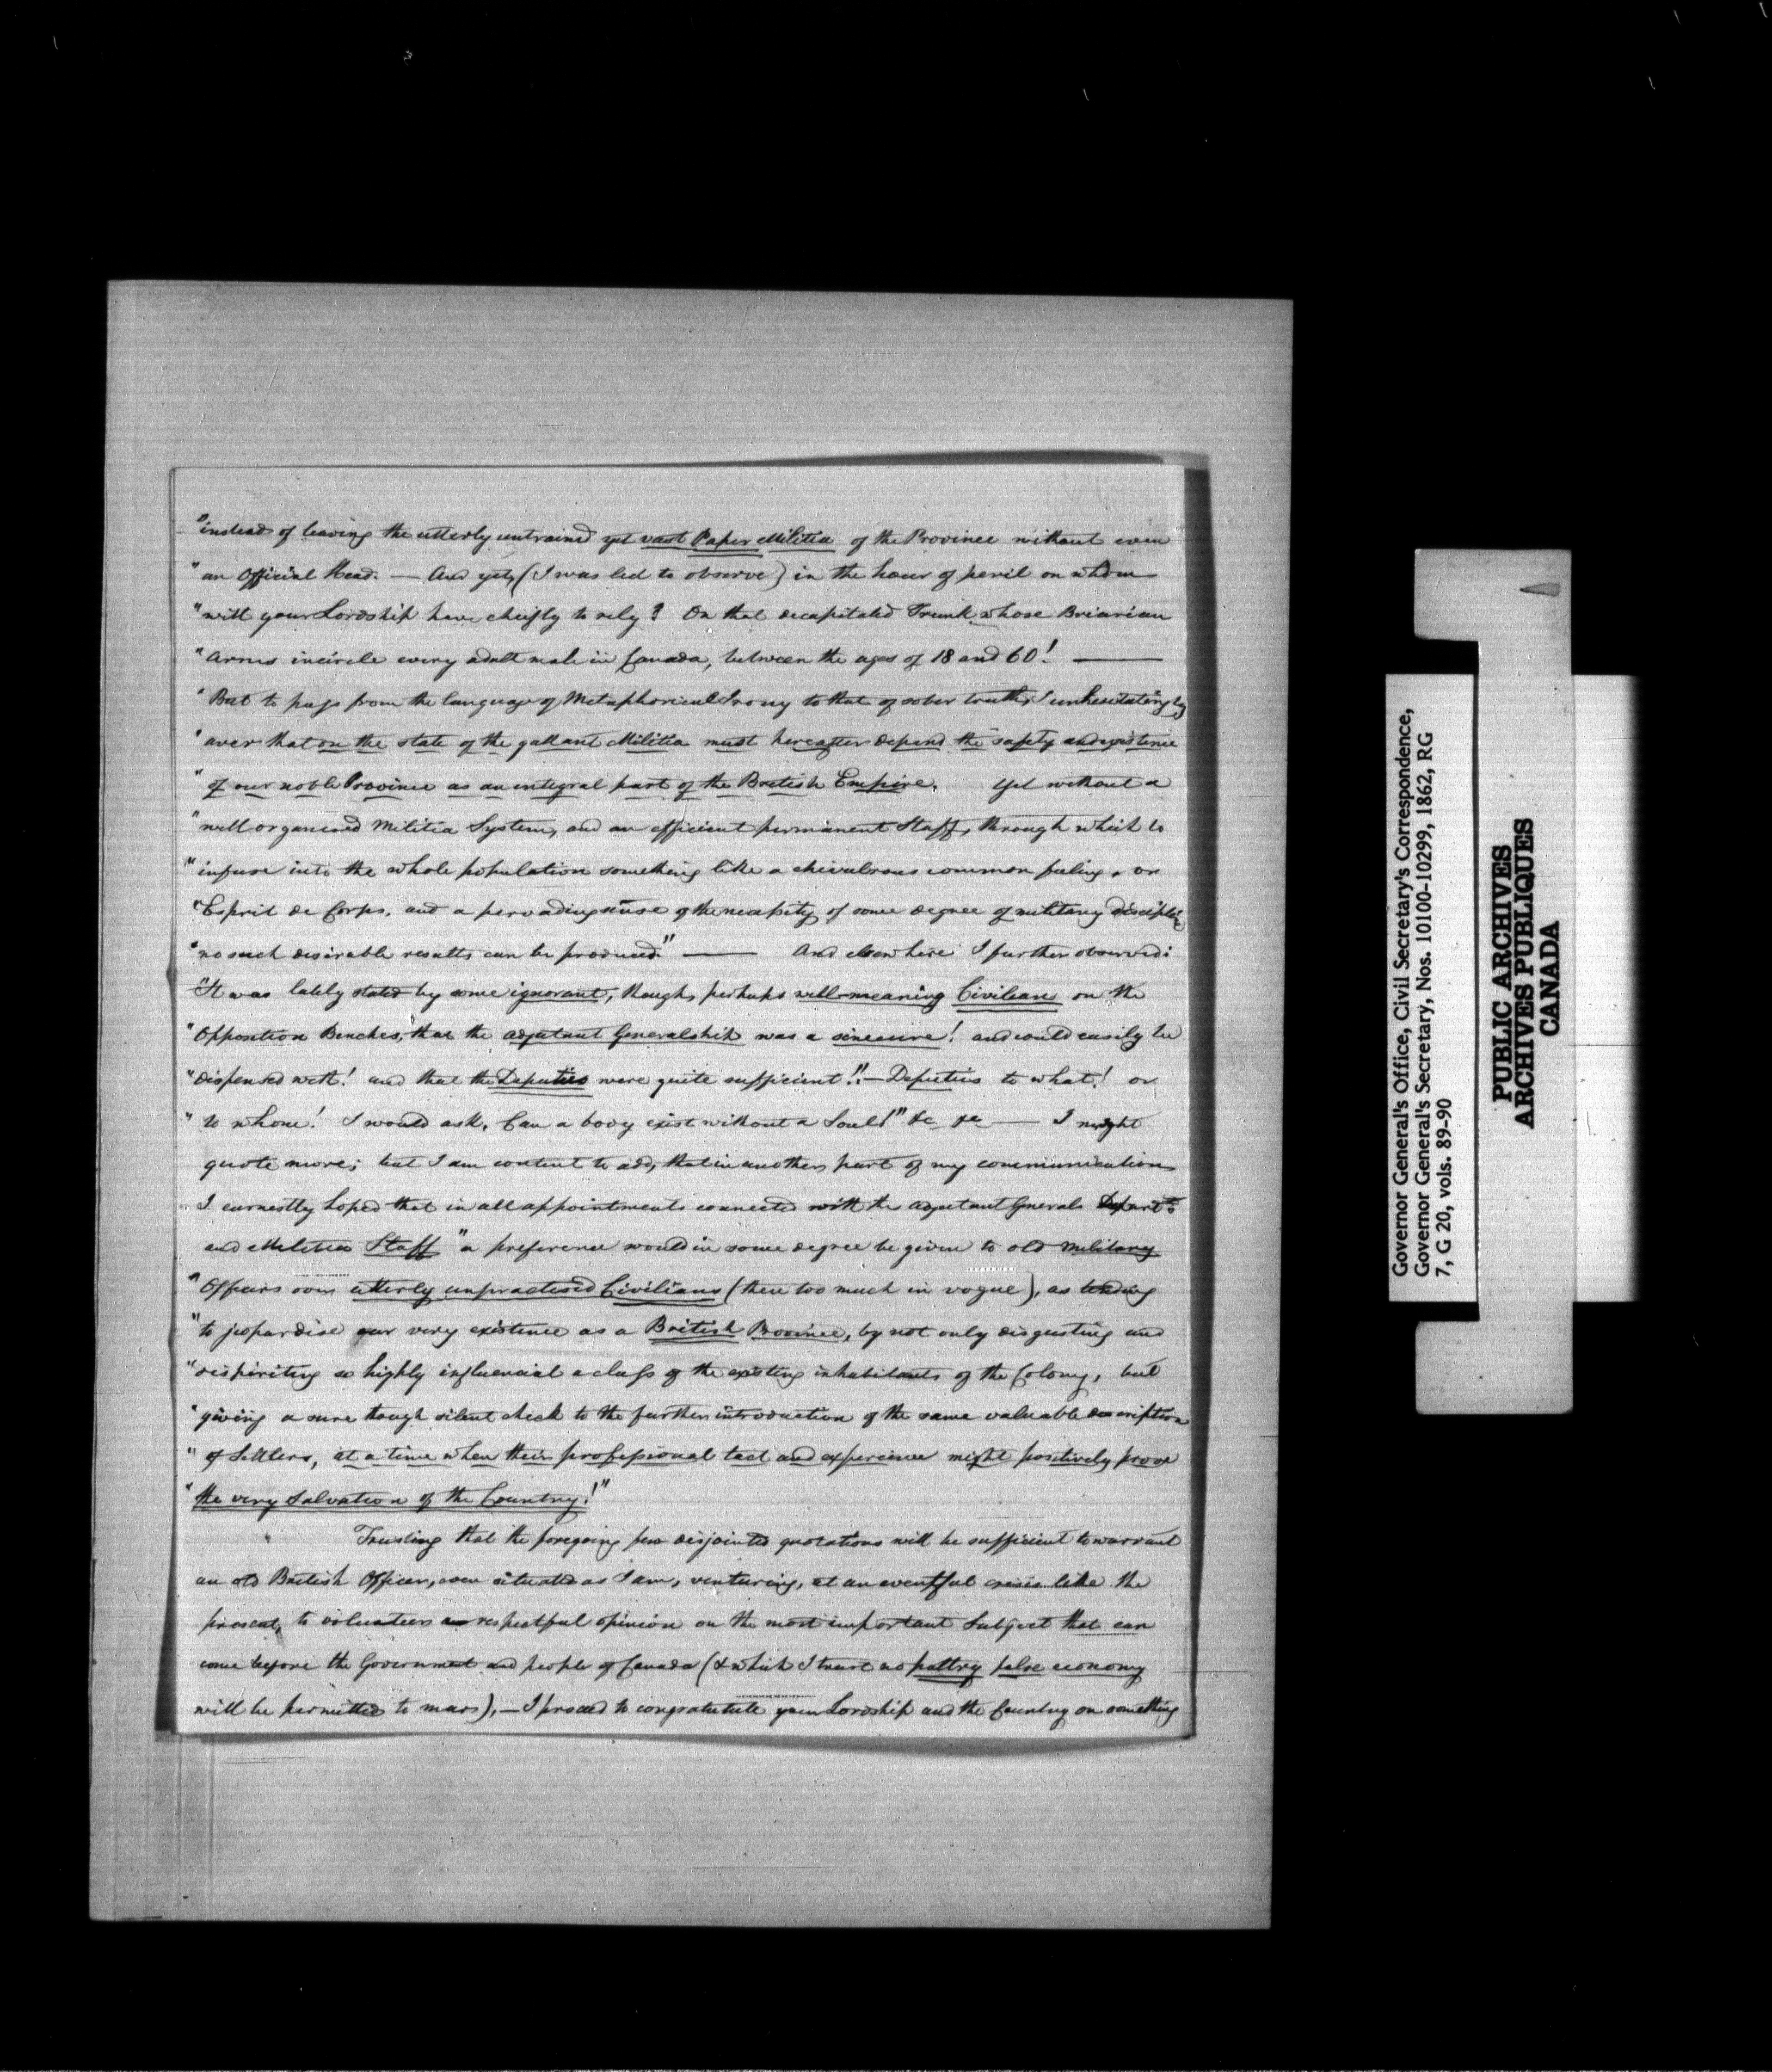 "instead of leaving the utterly untrained yet vast Paper Militia of the Province without even
"an Official Head. — And yet, (I was led to observe) in the hour of peril on whom
"will your Lordship have chiefly to rely? On that decapitated Trunk whose Briarian
"Arms incircle every adult male in Canada, between the ages of 18 and 60! —
"But to pass from the language of Metaphorical Irony to that of sober truth, I unhesitatingly
"aver that on the state of the gallant Militia must hereafter depend the safety and existence
"of our noble Province as an integral part of the British Empire. Yet without a
"well organised Militia System, and an efficient permanent Staff, through which to
"infuse into the whole population something like a chivalrous common feeling, or
"Esprit de Corps, and a pervading sense of the necessity of some degree of military discipline
"no such desirable results can be produced." — And elsewhere I further observed:
"It was lately stated by some ignorant, though perhaps well-meaning Civilians on the
"Opposition Benches, that the Adjutant Generalship was a sinecure! and could easily be
"dispensed with! and that the Deputies were quite sufficient!! — Deputies to what! or
"to whom! I would ask, Can a body exist without a Soul!" &c &c — I might
quote more; but I am content to add, that in another part of my communication
I earnestly hoped that in all appointments connected with the Adjutant Generals Depart
and Militia Staff "a preference would in some degree be given to old Military
"Officers over utterly unpractised Civilians (then too much in vogue), as tending
"to jeopardise our very existence as a British Province, by not only disgusting and
"dispiriting so highly influencial a class of the existing inhabitants of the Colony, but
"giving a sure though silent check to the further introduction of the same valuable description
"of Settlers, at a time when their professional tact and experience might positively prove
"the very Salvation of the Country!"
Trusting that the foregoing few disjointed quotations will be sufficient to warrant
an old British Officer, even situated as I am, venturing, at an eventful crisis like the
present, to volunteer respectful opinion on the most important Subject that can
come before the Government and people of Canada (& which I trust no paltry false economy
will be permitted to marr), — I proceed to congratulate your Lordship and the Country on something
Governor General's Office, Civil Secretary's Correspondence,
Governor General's Secretary, Nos. 10100-10299, 1862, RG
7, G 20, vols. 89-90
PUBLIC ARCHIVES
ARCHIVES PUBLIQUES
CANADA